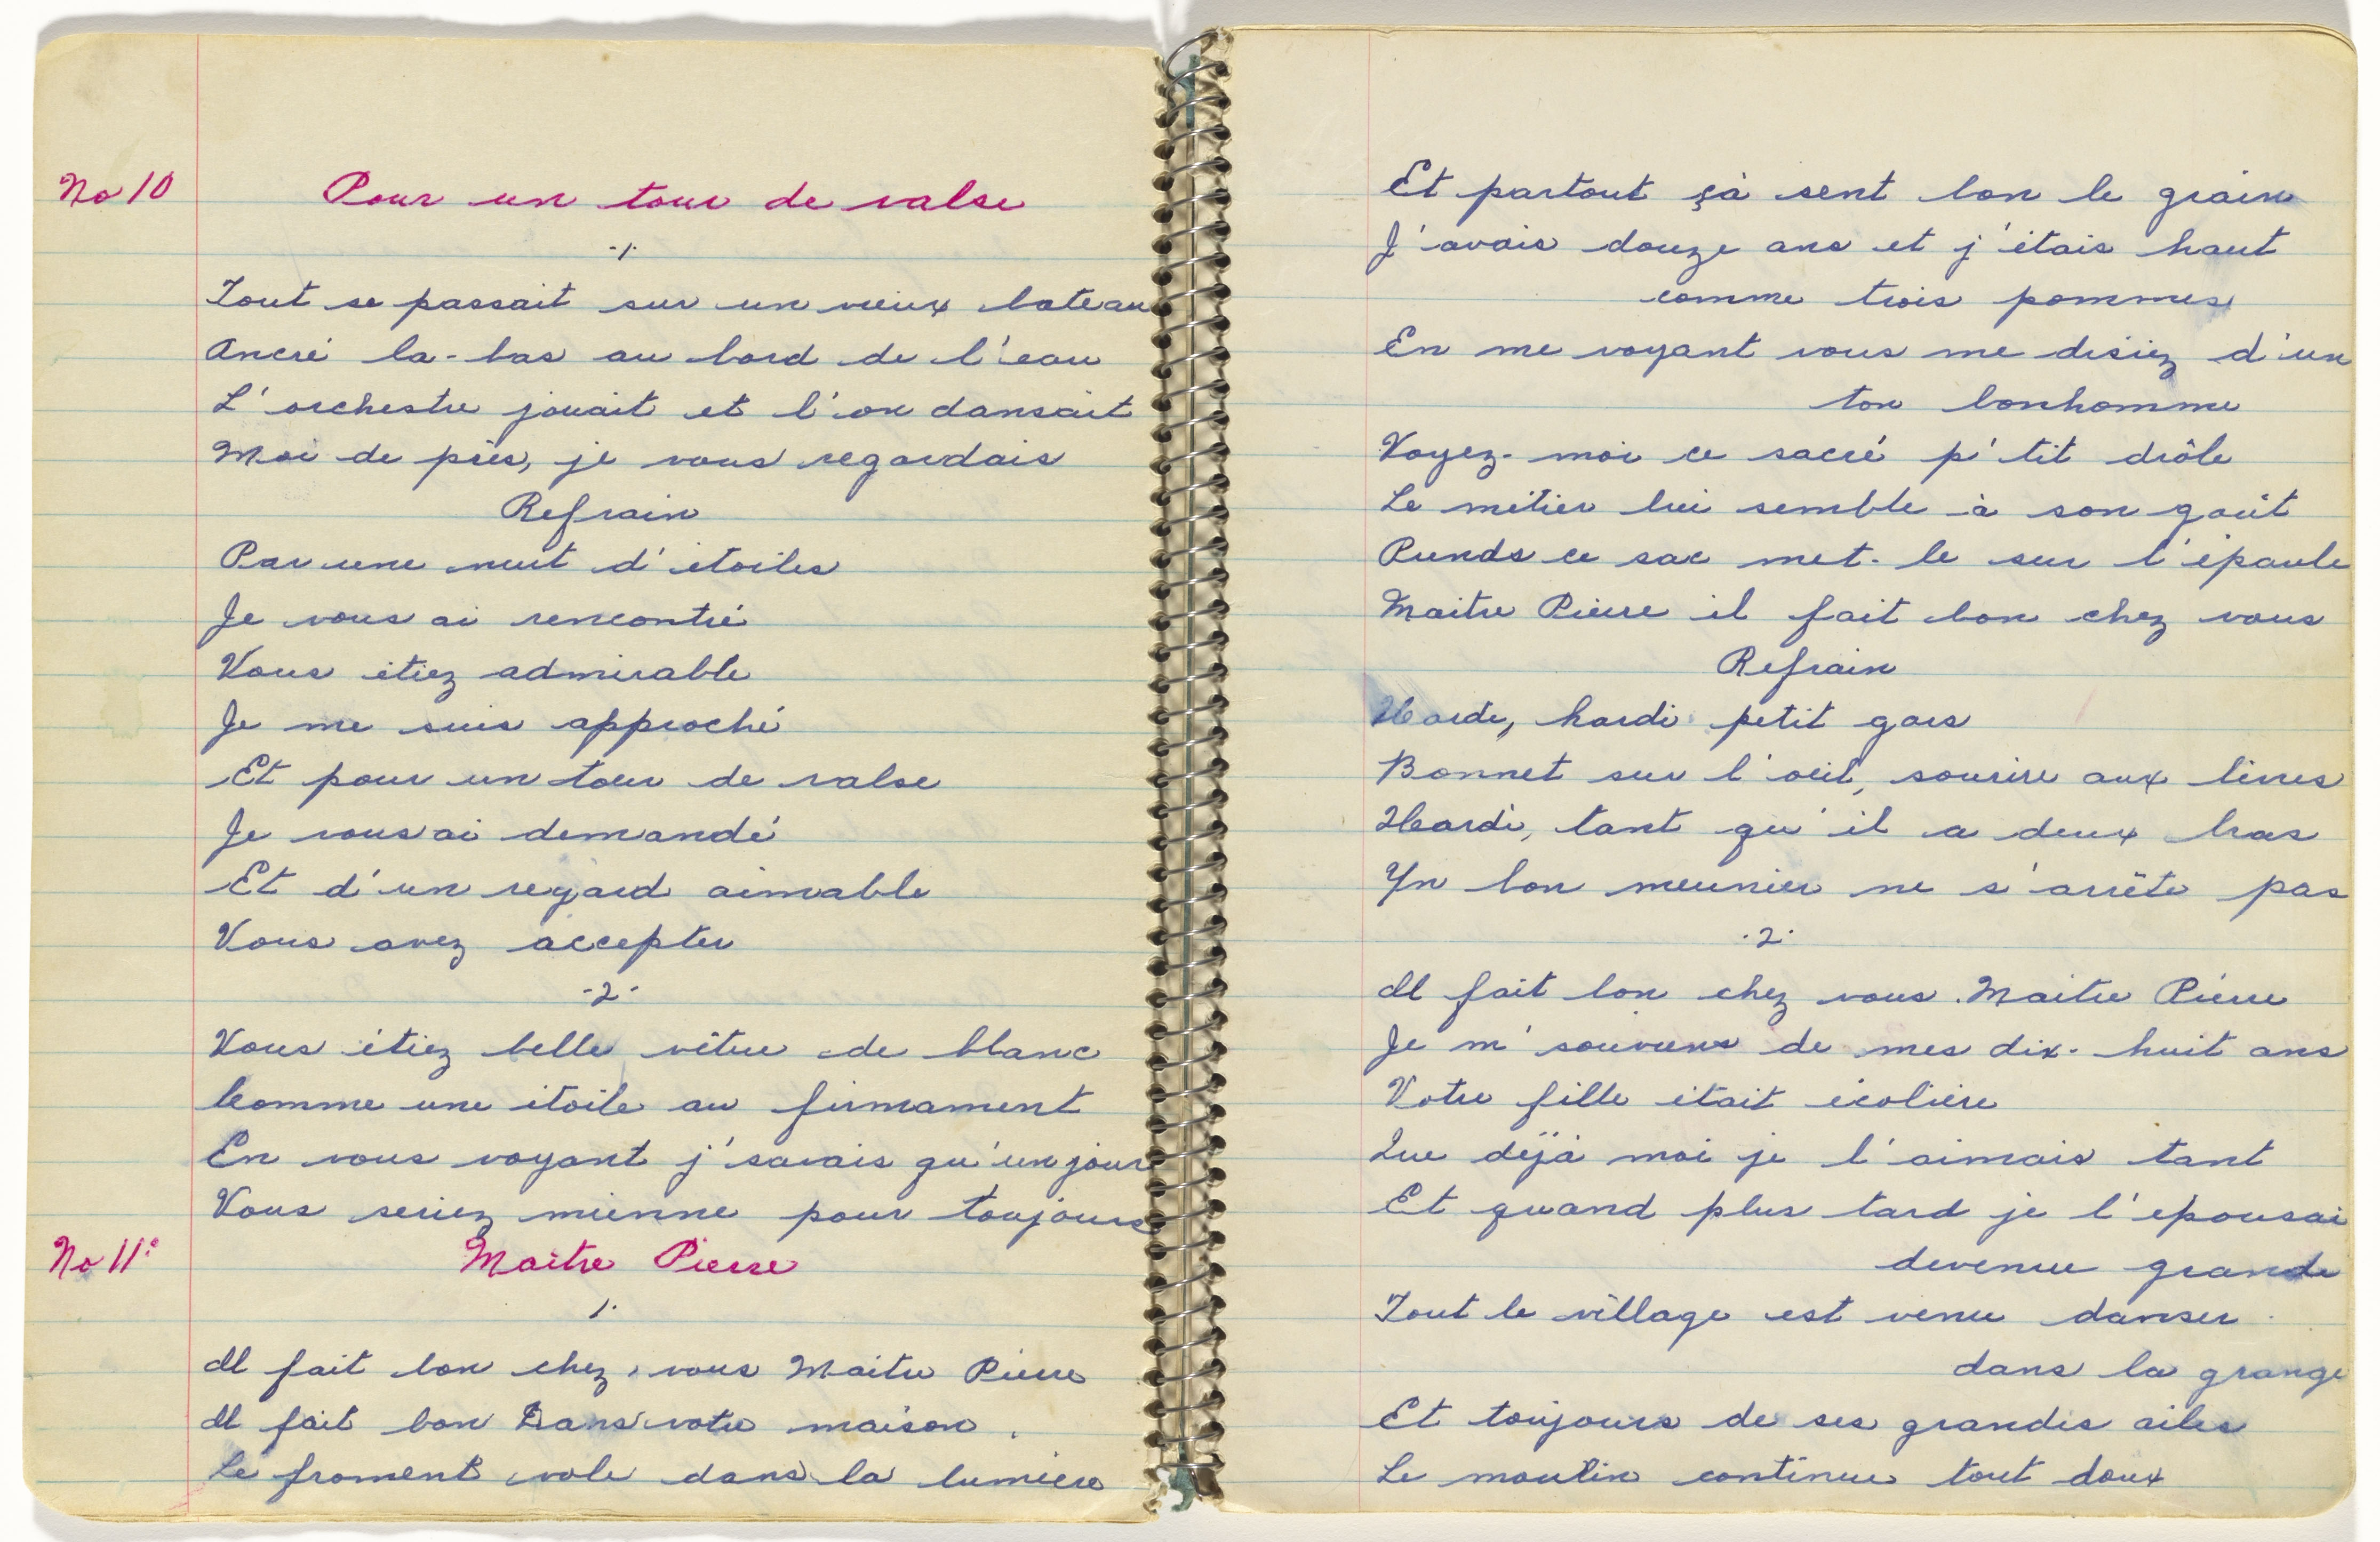 No 10
Pour un tour de valse
-1-
Tout se passait sur un vieux bateau
Ancré la-bas au bord de l'eau
L'orchestre jouait et l'on dansait
Moi de près, je vous regardais
Refrain
Par une nuit d'étoiles
Je vous ai rencontré
Vous étiez admirable
Je me suis approché
Et pour un tour de valse
Je vous ai demandé
Et d'un regard aimable
Vous avez accepter
-2-
Vous étiez belle vêtue de blanc
Comme une étoile au firmament
En vous voyant j'savais qu'un jour
Vous seriez mienne pour toujours
No 11:
Maitre Pierre
1.
Il fait bon chez vous Maitre Pierre
Il fait bon Dans votre maison.
Le froment vole dans la lumière
Et partout çà sent bon le grain
J'avais douze ans et j'étais haut
comme trois pommes
En me voyant vous me disiez d'un
ton bonhomme
Voyez-moi ce sacré p'tit drôle
Le métier lui semble à son goût
Prends ce sac met-le sur l'épaule
Maitre Pierre il fait bon chez vous
Refrain
Hardi, hardi petit gars
Bonnet sur l'oeil, sourire aux lèvres
Hardi, tant qu'il a deux bras
Un bon meunier ne s'arrête pas
-2-
Il fait bon chez vous Maitre Pierre
Je m'souviens de mes dix-huit ans
Votre fille était écolière
Que déjà moi je l'aimais tant
Et quand plus tard je l'epousai
devenue grande
Tout le village est venu danser
dans la grange
Et toujours de ses grandes ailes
Le moulin continue tout doux